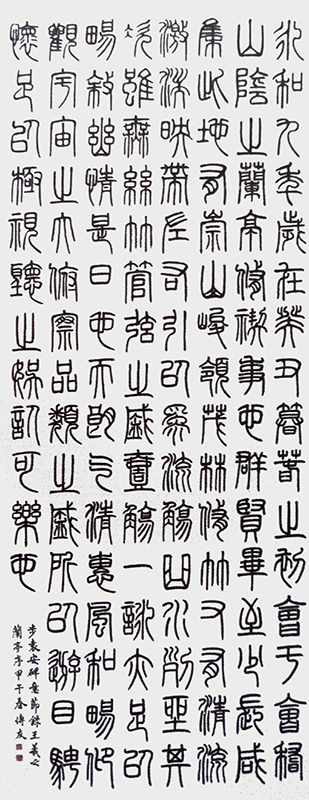 永和九年歲在癸丑暮春之初會于會稽
山陰之蘭亭脩禊事也群賢畢至少長咸
集此地有崇山峻領茂林脩竹又有清流
激湍映帶左右引以為流觴曲水列坐其
次雖無絲竹管弦之盛壹觴一詠亦足以
暢敘幽情是日也天朗气清惠風和暢仰
觀宇宙之大俯察品類之盛所以遊目騁
懷足以極視聽之娛信可樂也
步袁安碑意節錄王羲之
蘭亭序甲午春傳友